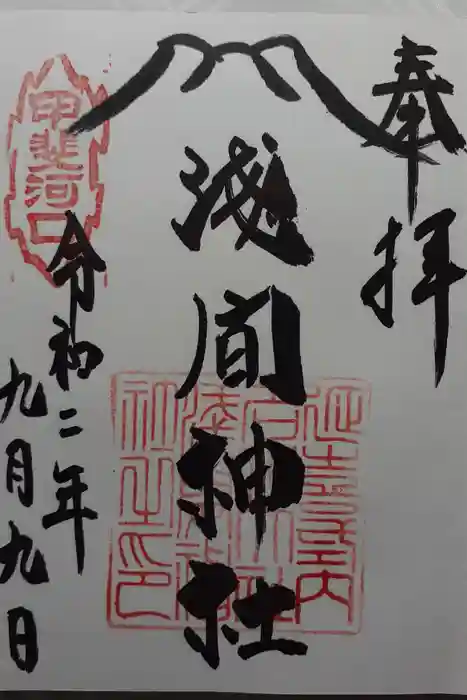 奉拝
浅間神社
甲斐河口
令和二年
九月九日
延喜式内
名神大社
浅間神社
初之印